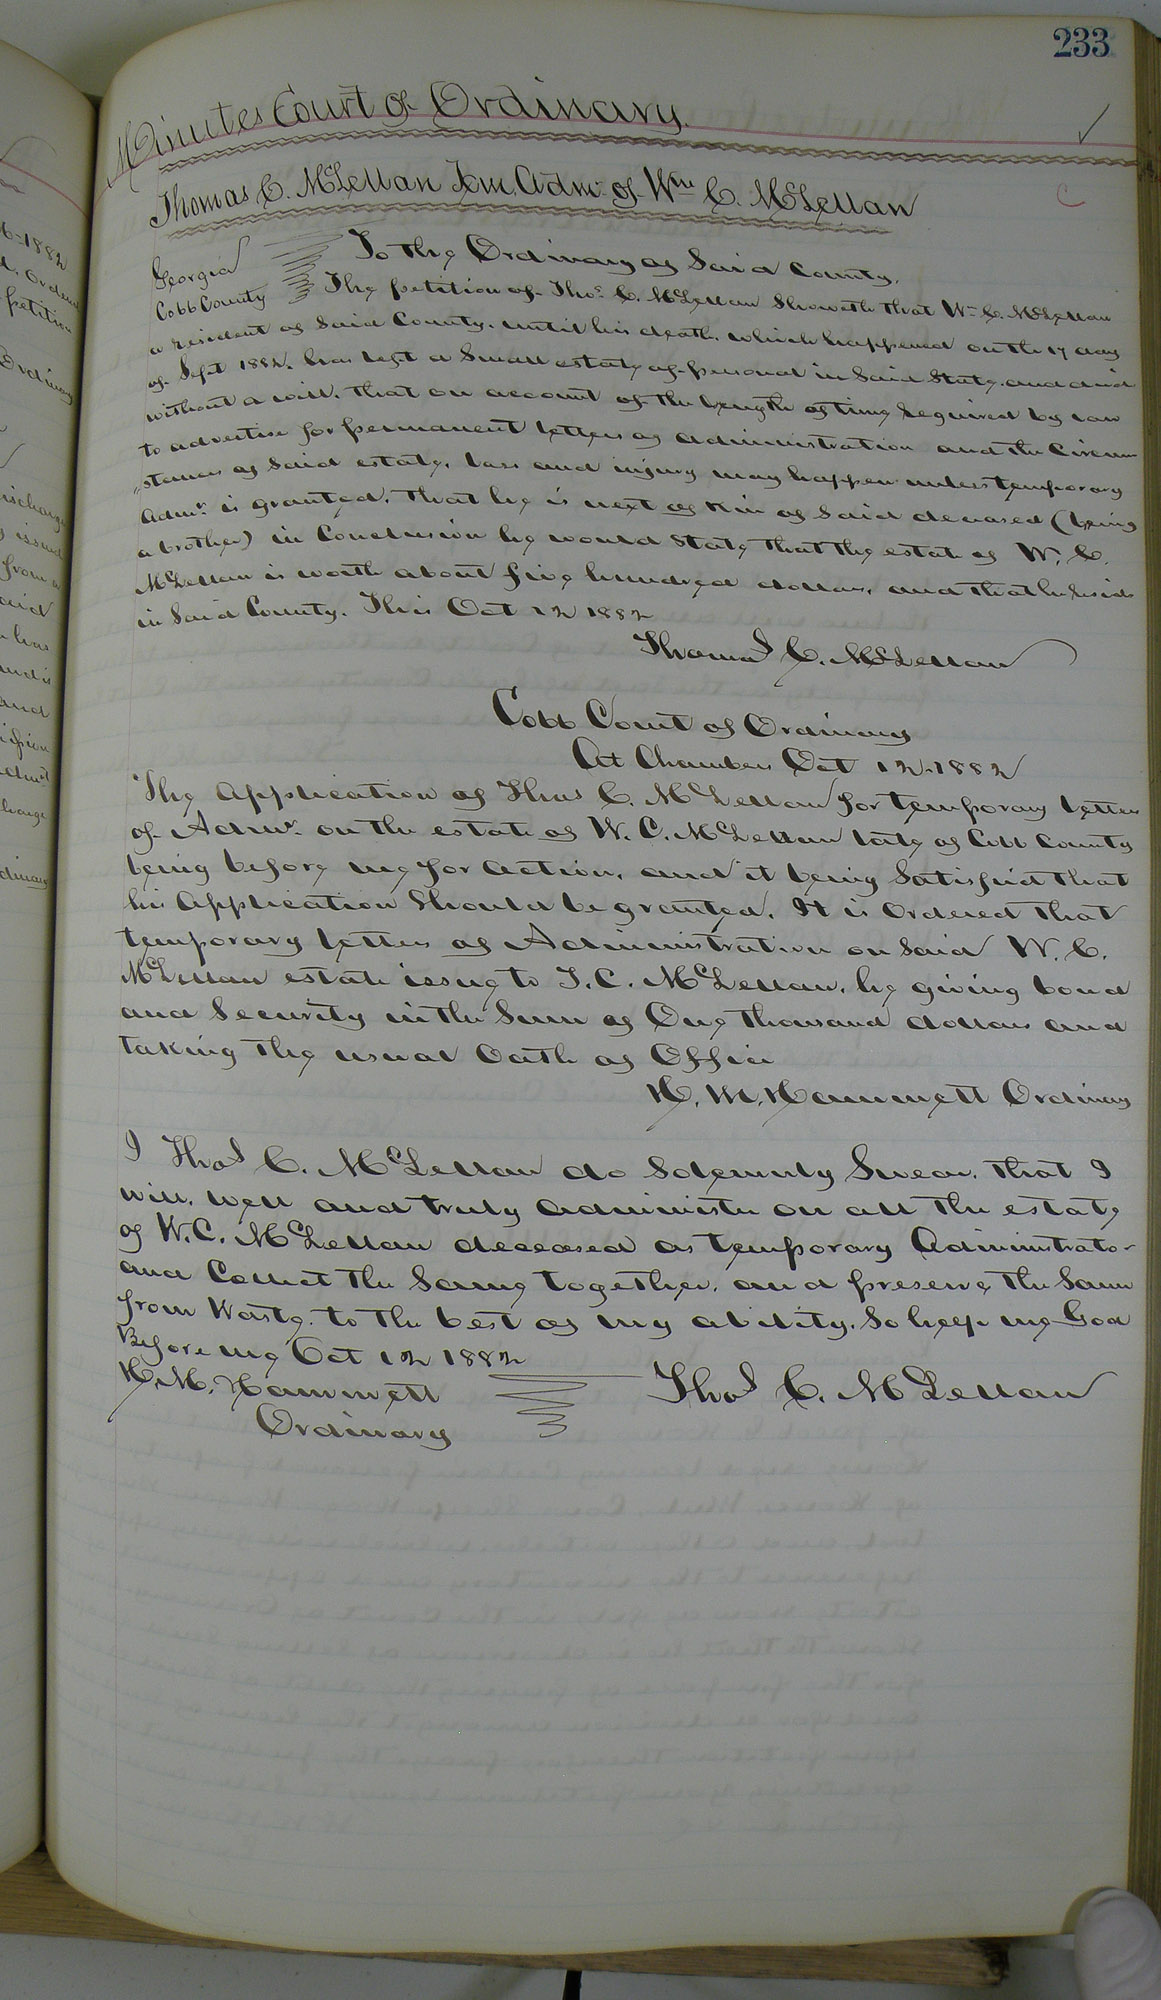 233
Minutes Court of Ordinary.
Thomas C. McLellan Tem. Adm.r of Wm C. McLellan
Georgia
Cobb County
To the Ordinary of Said County.
The petition of Thos. C. McLellan Showeth that Wm C. McLellan
a resident of Said County. until his death, which happened on the 17 day
of Sept 1882. has left a Small estate of personal in Said State, and died
without a will. that on account of the length of time required by law
to advertise for permanent letters of administration and the Circum
stances of Said estate, loss and injury may happen unless temporary
Admr. is granted. that he is next of Kin of Said deceased (being
a brother) in Conclusion he would State that the estate of W. C.
McLellan is worth about five hundred dollars, and that he resides
in Said County. This Oct 12 1882
Thomas C. McLellan
Cobb Court of Ordinary
At Chambers Oct 12. 1882
The Application of Thos C. McLellan for temporary letters
of Admr. on the estate of W. C. McLellan late of Cobb County
being before me for action, and it being Satisfied that
his Application Should be granted. It is Ordered that
temporary letters of Administration on Said W. C.
McLellan estate issue to T. C. McLellan, he giving bond
and Security in the Sum of One thousand dollars and
taking the usual Oath of Office
H. M. Hammett Ordinary
I Thos C. McLellan do Solemnly Swear. that I
will, well and truly administer on all the estate
of W. C. McLellan deceased as temporary Administrator
and Collect the Same together, and preserve the Same
from Waste. to the best of my ability. So help me God
Before me Oct 12 1882
H. M. Hammett
Ordinary
Thos C. McLellan
6-1882
petition
Ordinary
discharge
issued
from
said
has
and